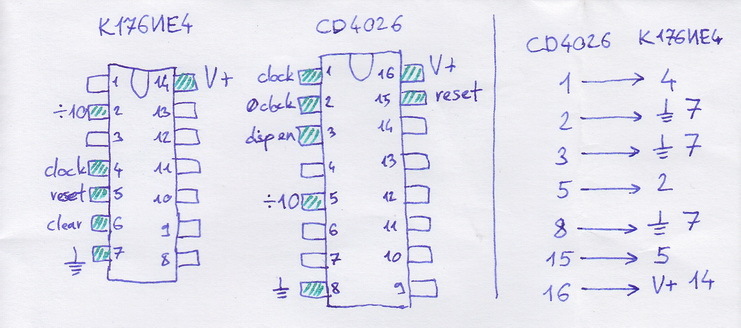 К176ИЕ4
1 14 V+
÷10 2 13
3 12
clock 4 11
reset 5 10
clear 6 9
⏚ 7 8
CD4026
clock 1 16 V+
Øclock 2 15 reset
disp en 3 14
4 13
÷10 5 12
6 11
7 10
⏚ 8 9
CD4026 К176ИЕ4
1 → 4
2 → ⏚ 7
3 → ⏚ 7
5 → 2
8 → ⏚ 7
15 → 5
16 → V+ 14